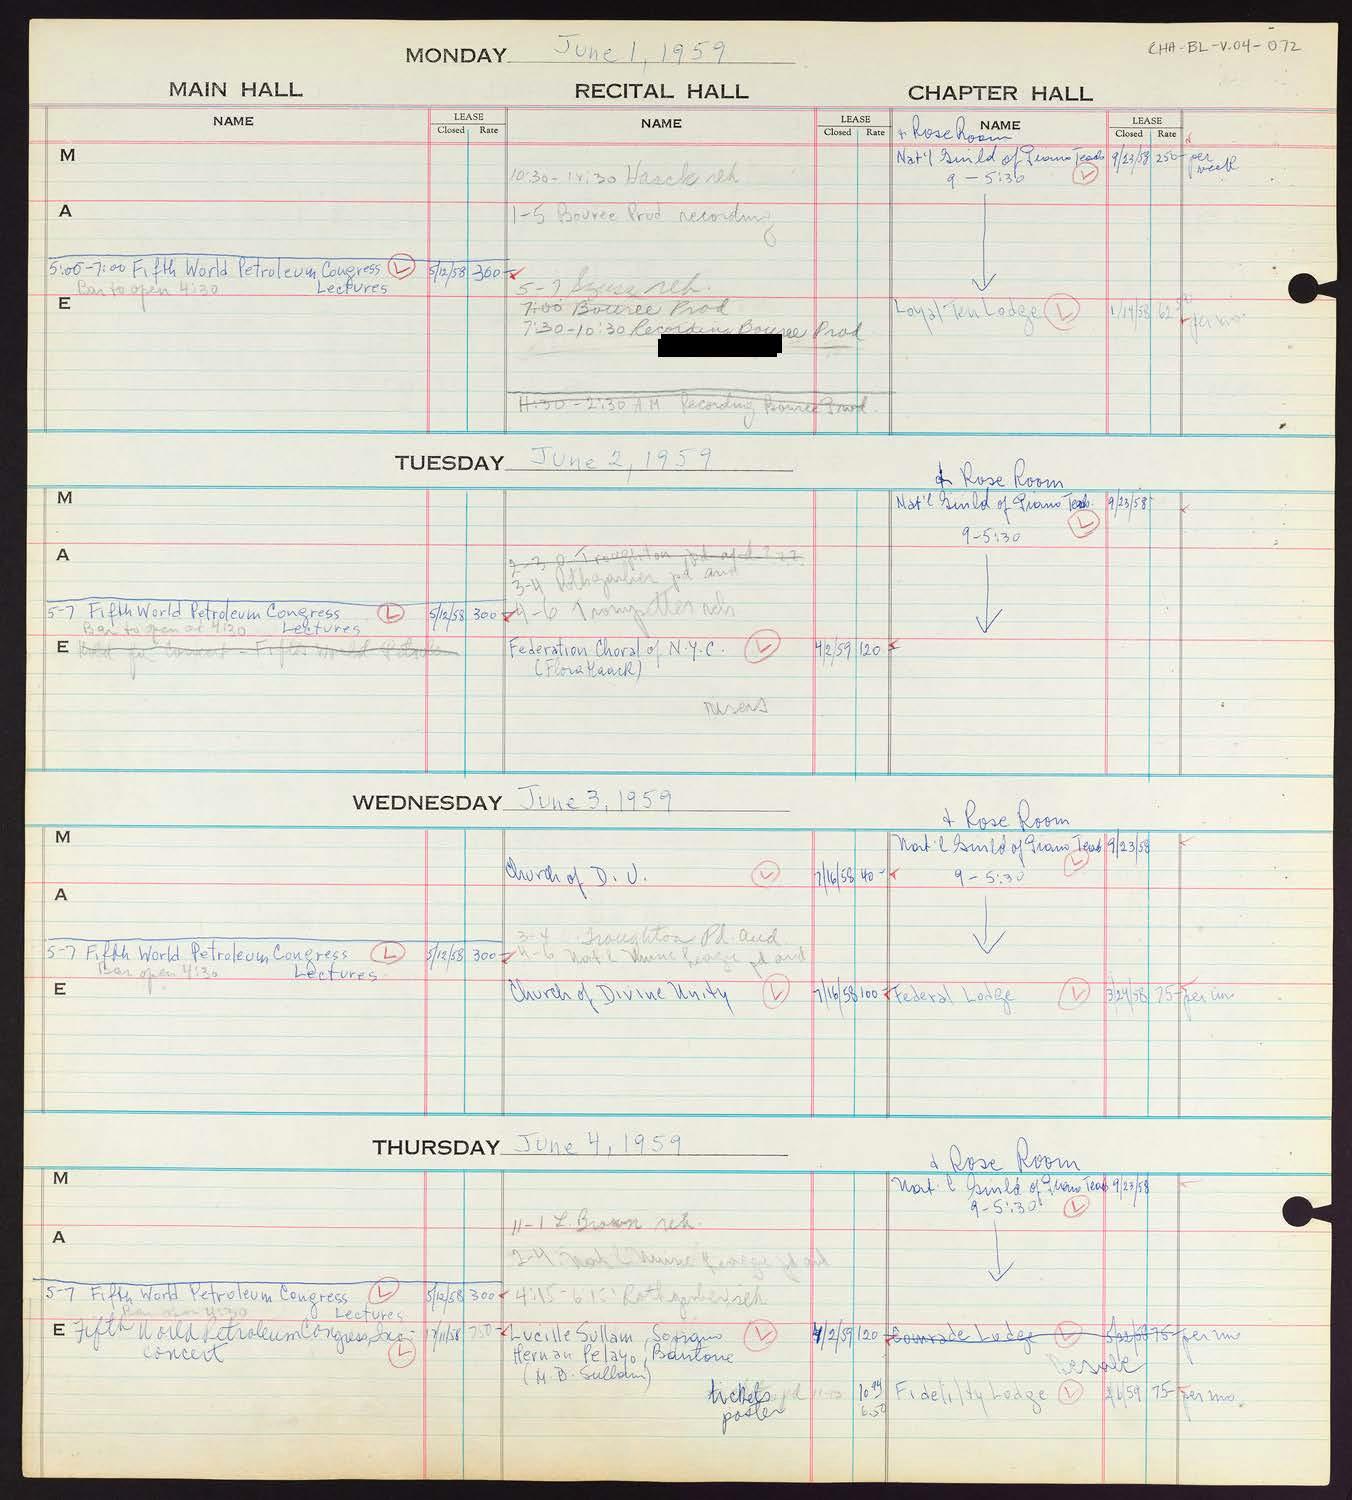 CHA-BL-V.04-072
MONDAY June 1, 1959
MAIN HALL RECITAL HALL CHAPTER HALL
NAME LEASE Closed Rate NAME LEASE Closed Rate NAME LEASE Closed Rate
+ Rose Room
M
Nat'l Guild of Piano Teach 9/23/58 250- per week
9 - 5:30 L
10:30-1 reh
A
1-5 Bouree Prod recording
5:00-7:00 Fifth World Petroleum Congress L 5/12/58 300-
Bar to open 4:30 Lectures
5-7 reh.
E
7:00 Bouree Prod
7:30-10:30 Recording Bouree Prod
Loyal Ten Lodge L 1/14/58 62.50 per mo.
11:30-2:30 AM Recording Bouree Prod.
TUESDAY June 2, 1959
+ Rose Room
M
Nat'l Guild of Piano Teach. 9/23/58
9-5:30 L
A
Troughton pd aud
3-4 Rothgarber pd aud
5-7 Fifth World Petroleum Congress L 5/12/58 300
Bar to open at 4:30 Lectures
4-6 Trompetter reh
E
Hold for Concert - Fifth World Petrole
Federation Choral of N.Y.C. L 4/2/59 120
(Flora Haack)
risers
WEDNESDAY June 3, 1959
+ Rose Room
M
Nat'l Guild of Piano Teach 9/23/58
9-5:30 L
Church of D. U. L 7/16/58 40-
A
3-4 Troughton Pd. aud
5-7 Fifth World Petroleum Congress L 5/12/58 300-
Bar open 4:30 Lectures
4-6 Nat'l Music League pd aud
E
Church of Divine Unity L 7/16/58 100
Federal Lodge L 3/24/58 75- per mo
THURSDAY June 4, 1959
+ Rose Room
M
Nat'l Guild of Piano Teach 9/23/58
9-5:30 L
11-1 L. Brown reh.
A
2-4 Nat'l Music League pd aud
5-7 Fifth World Petroleum Congress L 5/12/58 300
Bar open 4:30 Lectures
4:15-6:15 Rothgarber reh
E
Fifth World Petroleum Congress, Inc.- 750-
concert L
Lucille Sullam, Soprano L 4/2/59 120
Hernan Pelayo, Baritone
(M. B. Sullam)
Comrade Lodge L 75- per mo
Besate
tickets pd
poster 6.50
Fidelity Lodge L 59 75- per mo.